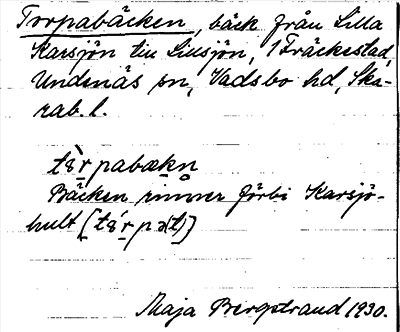 Torpabäcken, bäck från Lilla
Karsjön till Lillsjön, 1 Fräckestad,
Undenäs sn, Vadsbo hd, Ska-
rab. l.
Bäcken rinner förbi Karsjö-
hult
Maja Bergstrand 1930.